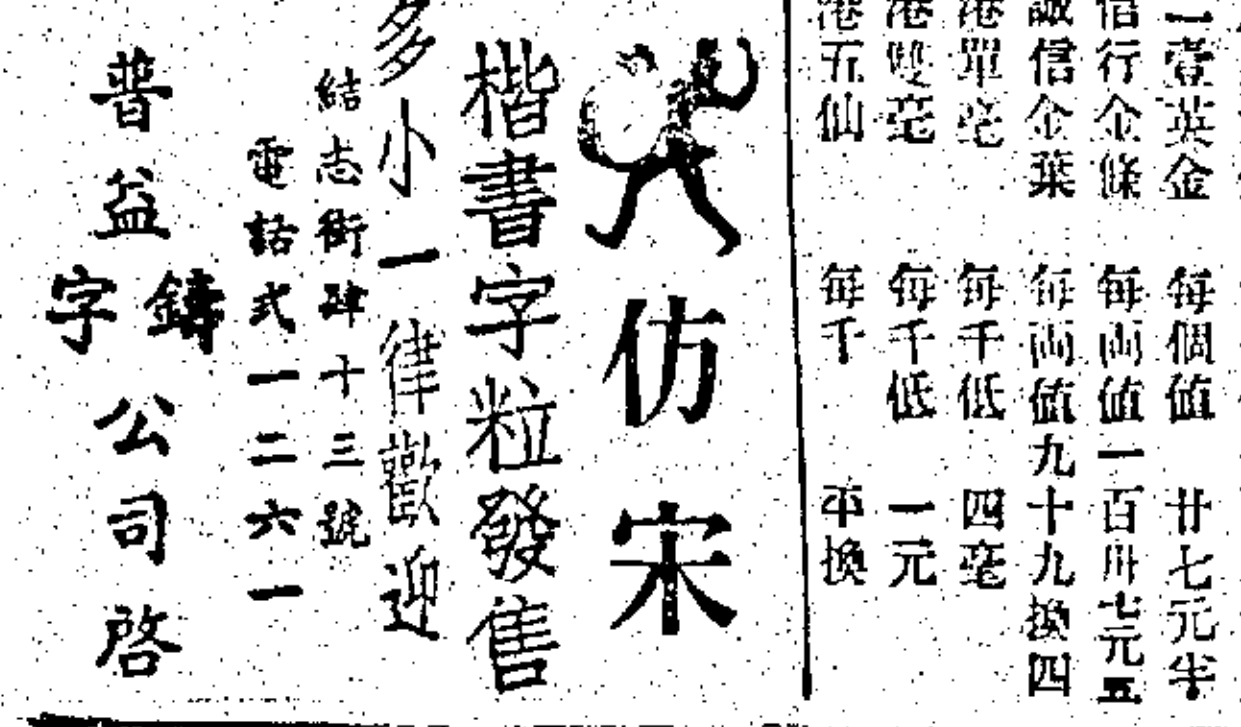 一壹英金 每個值 廿七元半
信行金條 每両值一百卅七元五
誠信金葉 每両值九十九換四
港單毫 每千低 四毫
港雙毫 每千低 一元
港五仙 每千 平換
仿宋
楷書字粒發售
多小一律歡迎
結志街肆十三號
電話弍一二六一
普益鑄字公司啓